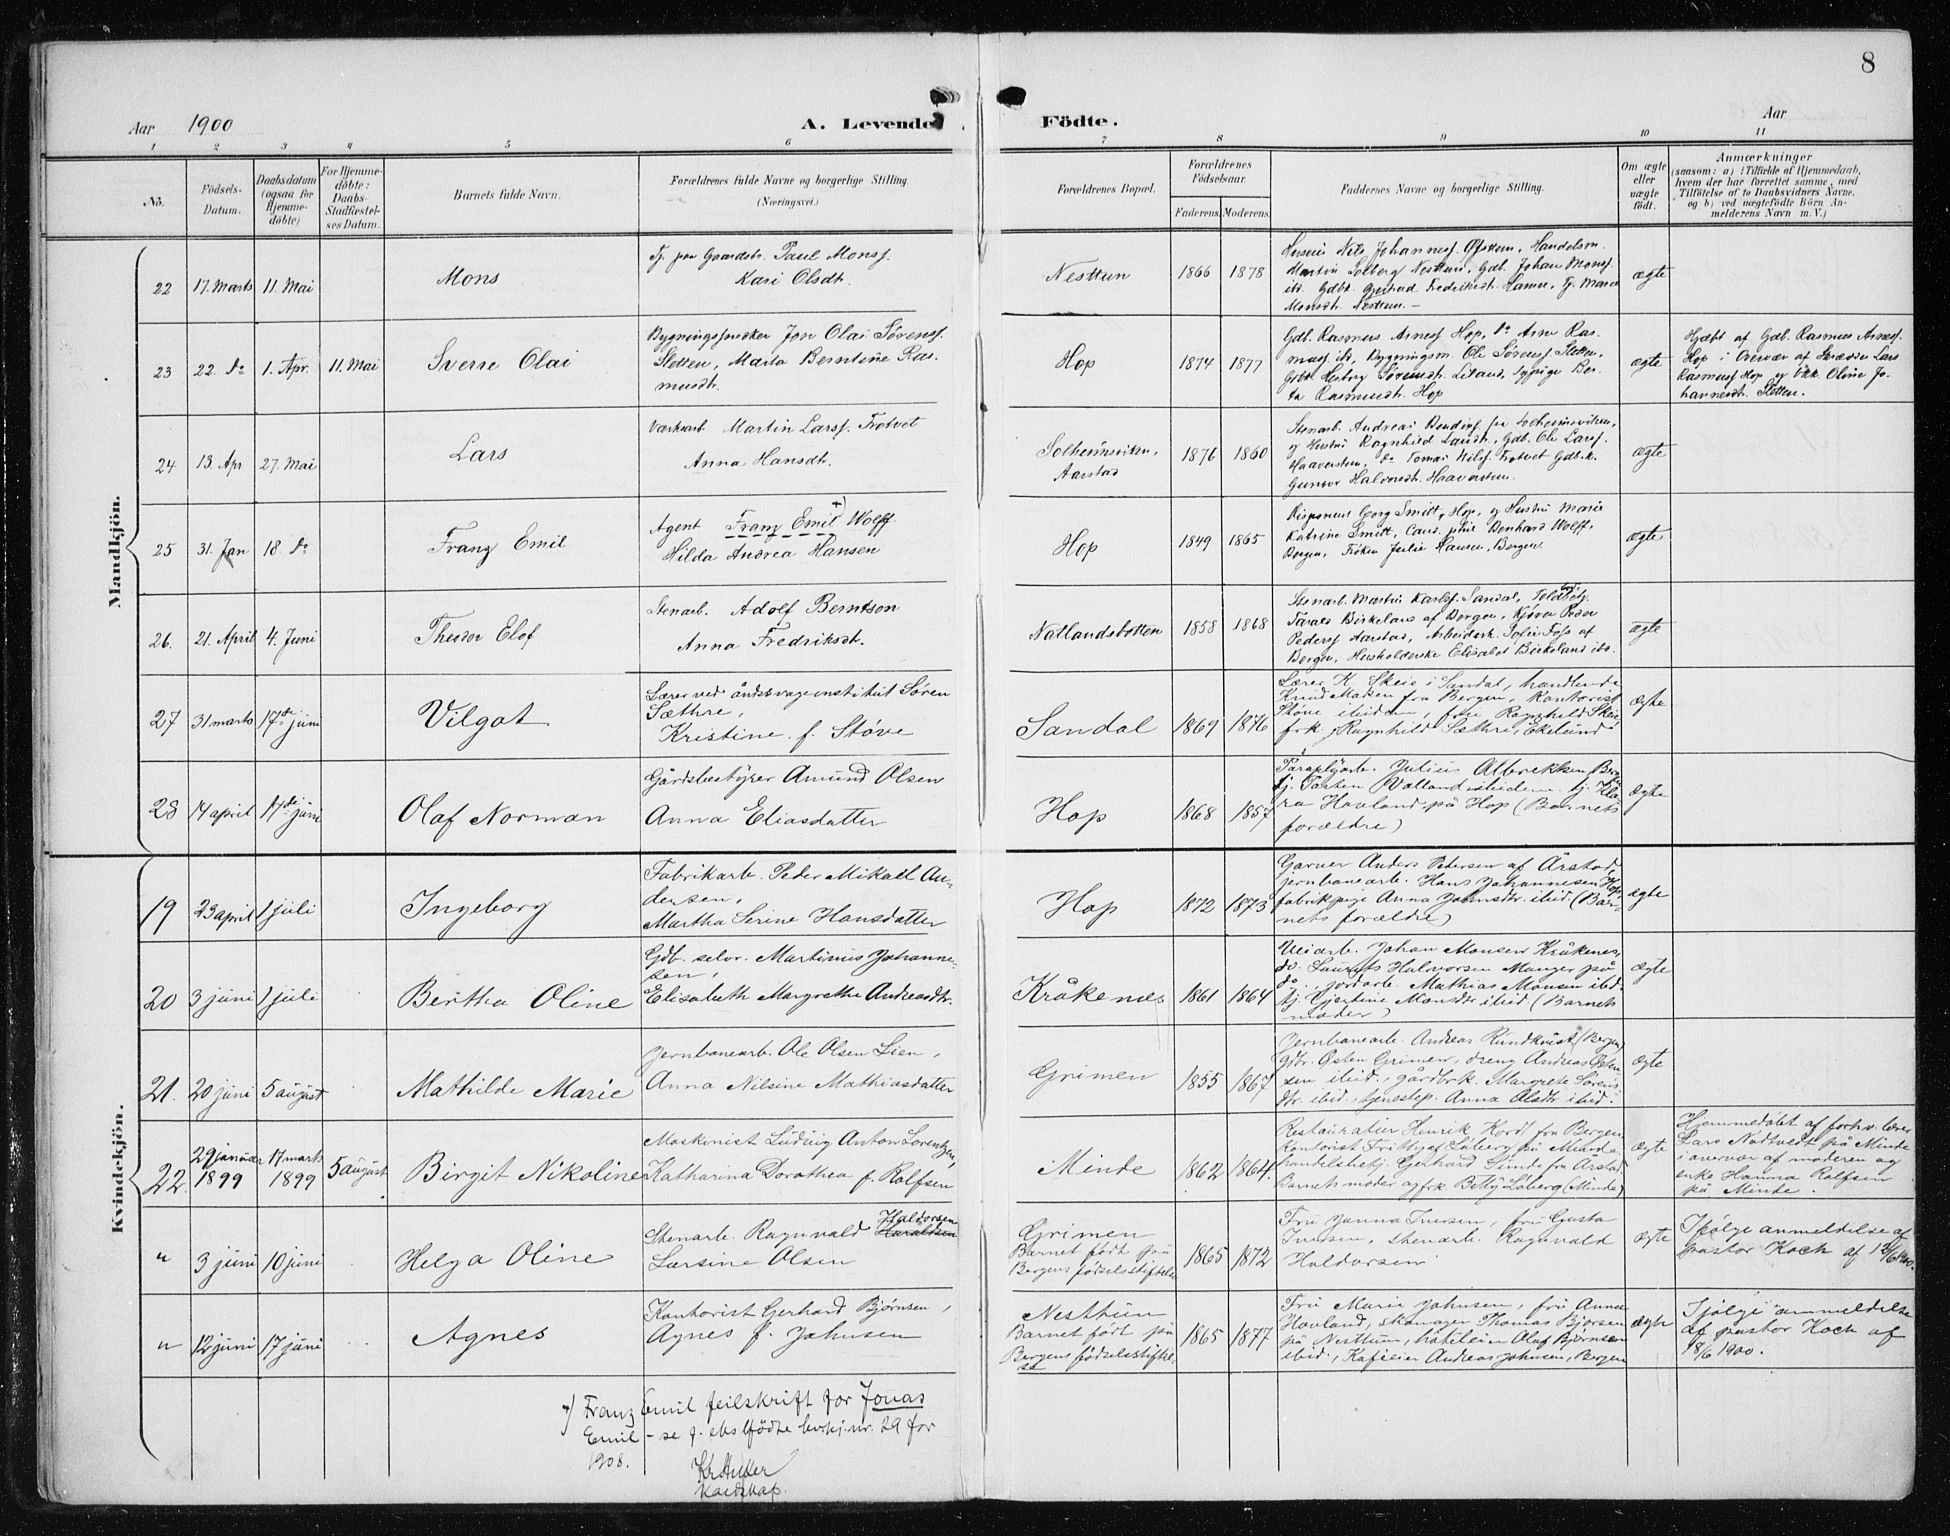 8
Aar 1900
A. Levende
Födte.
Aar
1 2 3 4 5 6 7 8 9 10 11
No.
Födsels-
Datum.
Daabsdatum
(ogsaa for
Hjemme-
döbte)
For Hjemme-
döbte:
Daabs-
Stadfæstel-
ses Datum.
Barnets fulde Navn.
Forældrenes fulde Navne og borgerlige Stilling.
(Næringsvei.)
Forældrenes Bopæl.
Forældrenes
Födselsaar.
Faderens. Moderens.
Faddernes Navne og borgerlige Stilling.
Om ægte
eller
uægte
födt.
Anmærkninger
(saasom: a) i Tilfælde af Hjemmedaab,
hvem der har forrettet samme, med
Tilföielse af to Daabsvidners Navne,
og b) ved uægtefödte Börn An-
melderens Navn m. V.)
Mandkjön.
22 17. Marts 11. Mai
Mons
Paul Monss.
Kari Olsdtr.
Nesttun
1866 1878
Martin Solberg Nesttun, Gdb. Johan Monss.
Monsdtr. Nesttun.
ægte
23 22. do 1. Apr. 11. Mai
Sverre Olai
Jon Olai Sørenss.
Sletten, Marta Berntine Ras-
musdtr.
Hop
1874 1877
Gdb. Rasmus Arness Hop, do Arne Ras-
muss ib., Bygningsm. Ole Sørenss Sletten,
ta Rasmusdtr. Hop
ægte
Hjdbt af Gdb. Rasmus Arness.
Hop i Overvær af Lars
Rasmuss Hop og Oline Jo-
hannesdtr. Sletten.
24 13. Apr 27. Mai
Lars
Værksarb. Martin Larss. Trotvet
Anna Hansdtr.
Solheimsviken,
Aarstad
1876 1860
Stenarb. Andreas
og Hustru Ragnhild Larsdtr., Gdb. Ole Larss.
Gunvor Halvorsdtr.
ægte
25 31. Jan 18. do
Franz Emil
Agent Franz Emil +) Wolff
Hilda Andrea Hansen
Hop
1849 1865
Disponent Georg Smitt, Hop, og Hustru Marie
Katrine Smitt, Cand. phil Bernhard Wolff,
Bergen, Frøken Julie Hansen, Bergen.
ægte
26. 21. April 4. Juni
Theodor Elof
Stenarb. Adolf Berntson
Anna Fredriksdtr.
Natlandsbotten
1858 1868
Stenarb. Martin Karlss. Sandal,
Birkeland af Bergen, Peder
Pederss Aarstad, Arbeiderk. Sofie Foss af
Bergen, Husholderske Elisabet Birkeland ibd.
ægte
27 31 marts 17de juni
Vilgot
Lærer ved åndssvageinstitut Søren
Sæthre,
Kristine f. Støve
Sandal
1869 1876
Lærer K. Skeie i Sandal, handlende
Knud Madsen fra Bergen, Kontorist
Støve ibidem, frk. Ragnhild Skeie,
frk. Ragnhild Sæthre, Ekelund
ægte
28 14 april 17de juni
Olaf Norman
Gårdsbestyrer Amund Olsen
Anna Eliasdatter
Hop
1868 1857
Paraplyarb. Julius Albrektsen, Bergen,
tj. Torsten Valland ibidem, tj. Kla-
ra Hovland på Hop (Barnets
forældre)
ægte
Kvindekjön.
19 23 april 1 juli
Ingeborg
Fabrikarb. Peder Mikall An-
dersen,
Martha Serine Hansdatter
Hop
1872 1873
Garver Anders Petersen af Årstad,
jernbanearb. Hans Johannesen Hop,
fabrikpige Anna Johnsdtr. ibid (Bar-
nets forældre)
ægte
20 3 juni 1 juli
Bertha Oline
Gdb. selv. Martinus Johanne-
sen,
Elisabeth Margrethe Andreasdtr.
Kråkenes
1861 1864
Veiarb. Johan Monsen Kråkenes,
do. Laurits Halvorsen Manger på
do., jordarb. Mathias Monsen ibid.
tj. Gjertine Monsdtr ibid (Barnets
moder)
ægte
21. 20 juni 5 august
Mathilde Marie
Jernbanearb. Ole Olsen Lien,
Anna Nilsine Mathiasdatter
Grimen
1855 1867
Jernbanearb. Andreas Rundkvist (Bergen)
gdbr. Østen Grimen, dreng Andreas Østen-
sen ibid., gårdbrk. Margrete Sørens-
dtr. ibid., tjenestep. Anna Olsdtr ibid.
ægte
22. 29 januar 1899 17 marts 1899 5 august
Birgit Nikoline
Maskinist Ludvig Anton Lorentzen,
Katharina Dorothea f. Rolfsen
Minde
1862 1864.
Restauratør Henrik Kord fra Bergen,
Kontorist Frithjof Løberg på Minde
handelsbetj. Gerhard Sunde fra Årstad
Barnets moder og frk. Betty Løberg (Minde)
ægte
Hjemmedøbt af forhv. lærer
Lars Nødtvedt på Minde
i overvær af moderen og
enke Hanna Rolfsen
på Minde.
" 3 juni 10 juni
Helga Oline
Stenarb. Ragnvald Haraldsen Haldorsen
Larsine Olsen
Grimen
Barnet født på
Bergens fødselsstiftelse
1865 1872
Fru Janna Iversen, fru Gusta
Iversen, stenarb. Ragnvald
Haldorsen
ægte
Ifølge anmeldelse af
pastor Koch af 12/6 1900.
" 12 juni 17 juni
Agnes
Kontorist Gerhard Bjørnsen,
Agnes f. Johnsen
Nesttun
Barnet født på
Bergens fødselsstiftel-
se
1865 1877
Fru Marie Johnsen, fru Anna
Hovland, skomager Thomas Bjørsen
på Nesttun, hoteleier Olaf Bjørnsen
ibid., Kafeeier Andreas Johnsen, Bergen
ægte
Ifølge anmeldelse
af pastor Koch af
18/6 1900.
+) Franz Emil feilskrift for Jonas
Emil - se f. eks födte kvkj. nr. 29 for
1908.